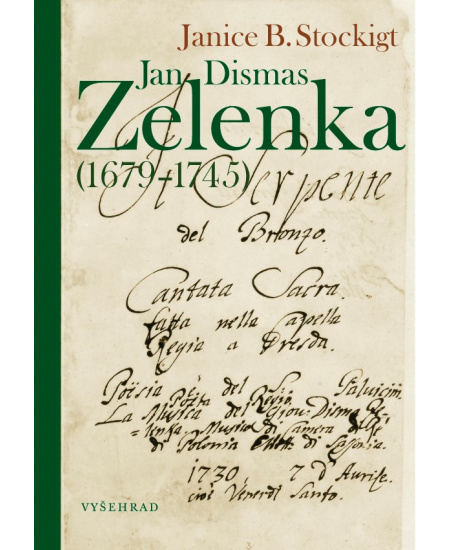 Janice B. Stockigt
Jan Dismas
Zelenka
(1679–1745)
Il Serpente
del Bronzo.
Cantata Sacra.
fatta nella Capella
Regia a Dresda.
Poësia è del Sig.
Poëta del Regio.
La Musica del Giov: Disma Ze-
=lenka Musico di Camera
di Polonia di Sassonia.
1730 7 d'Aprile.
cioè Venerdi Santo.
VYŠEHRAD